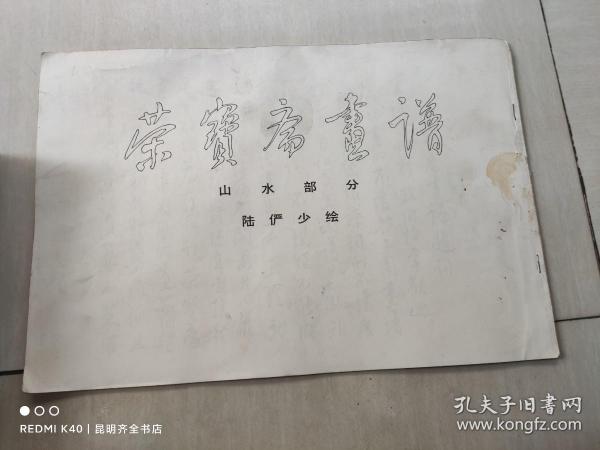 荣寶斋畫谱
山水部分
陆俨少绘
REDMI K40 | 昆明齐全书店
孔夫子旧书网
www.kongfz.com